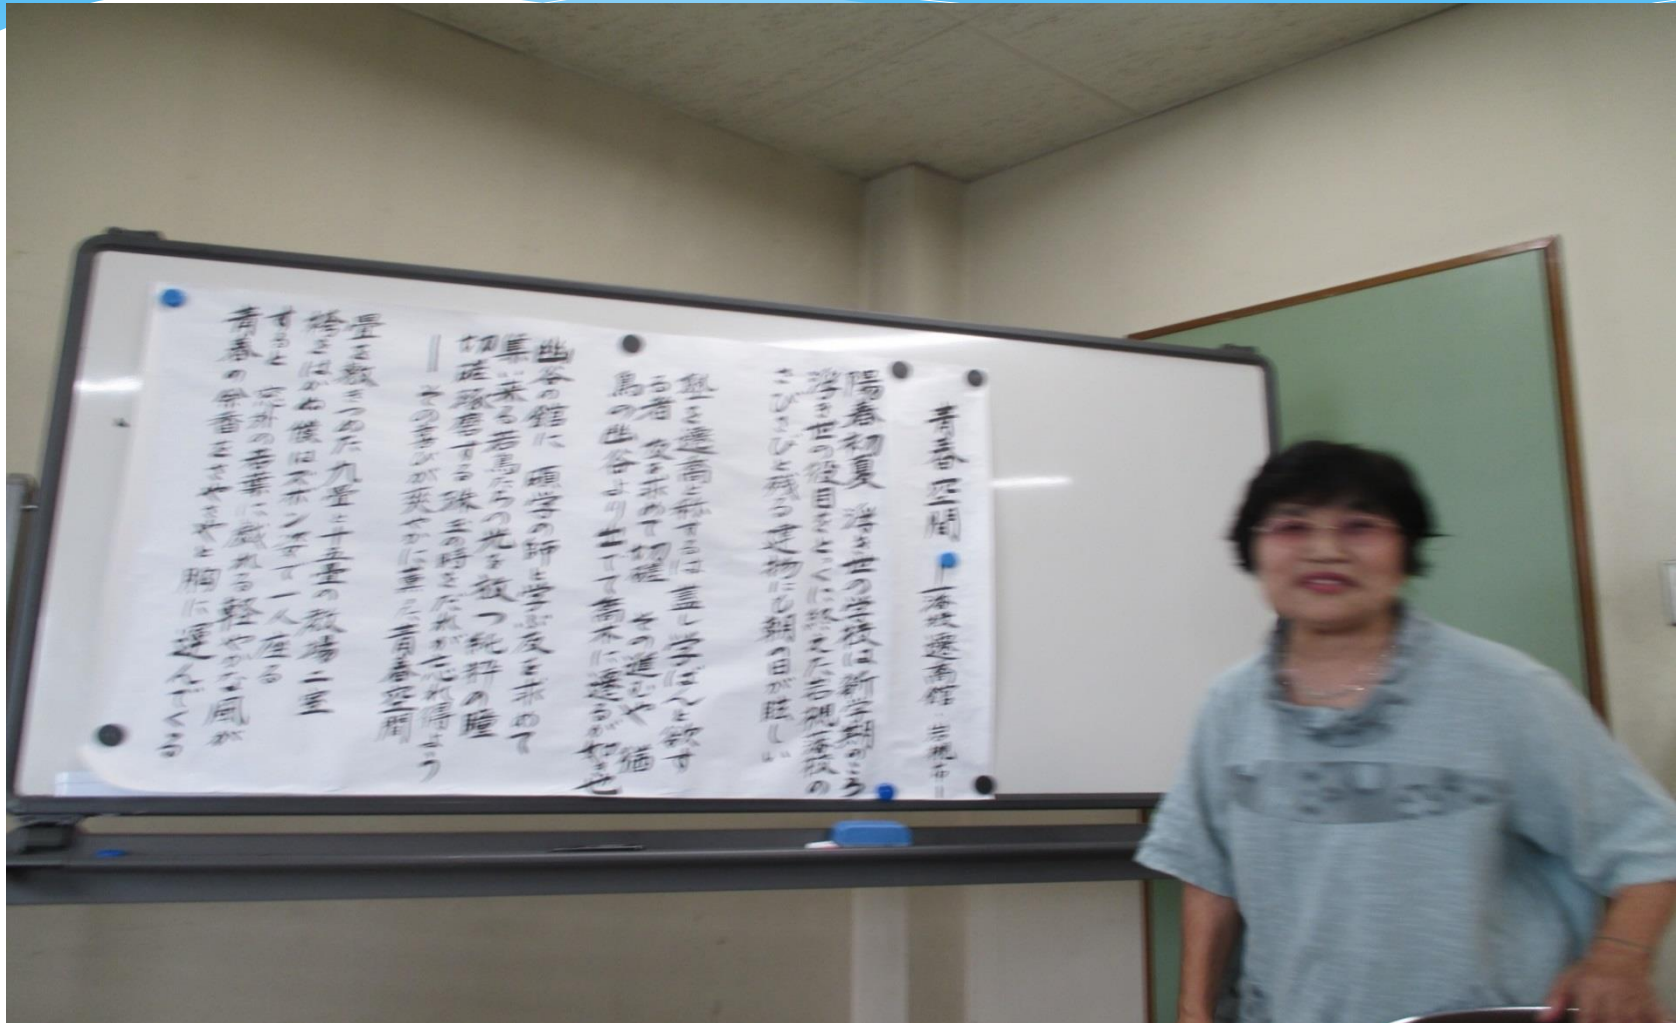 青春空間 ―藩校遷喬館・岩槻市―
陽春初夏 浮き世の学校は新学期のころ
浮き世の役目をとっくに終えた岩槻藩校の
さびさびと残る建物にも朝の日が眩しい
塾を遷喬と称するは 蓋し学ばんと欲す
る者 友を求めて切磋 その進むや 猶
鳥の幽谷より出でて喬木に遷るが如き也
幽谷の館に 碩学の師と学ぶ友を求めて
集い来る若鳥たちの光を放つ純粋の瞳
切磋琢磨する珠玉の時をだれが忘れ得よう
― その喜びが爽やかに薫った青春空間
畳を敷きつめた九畳と十五畳の教場二室
袴をはかぬ僕はズボンで 一人座る
すると 京所の若葉に戯れる軽やかな風が
青春の余香をさやさやと胸に運んでくる